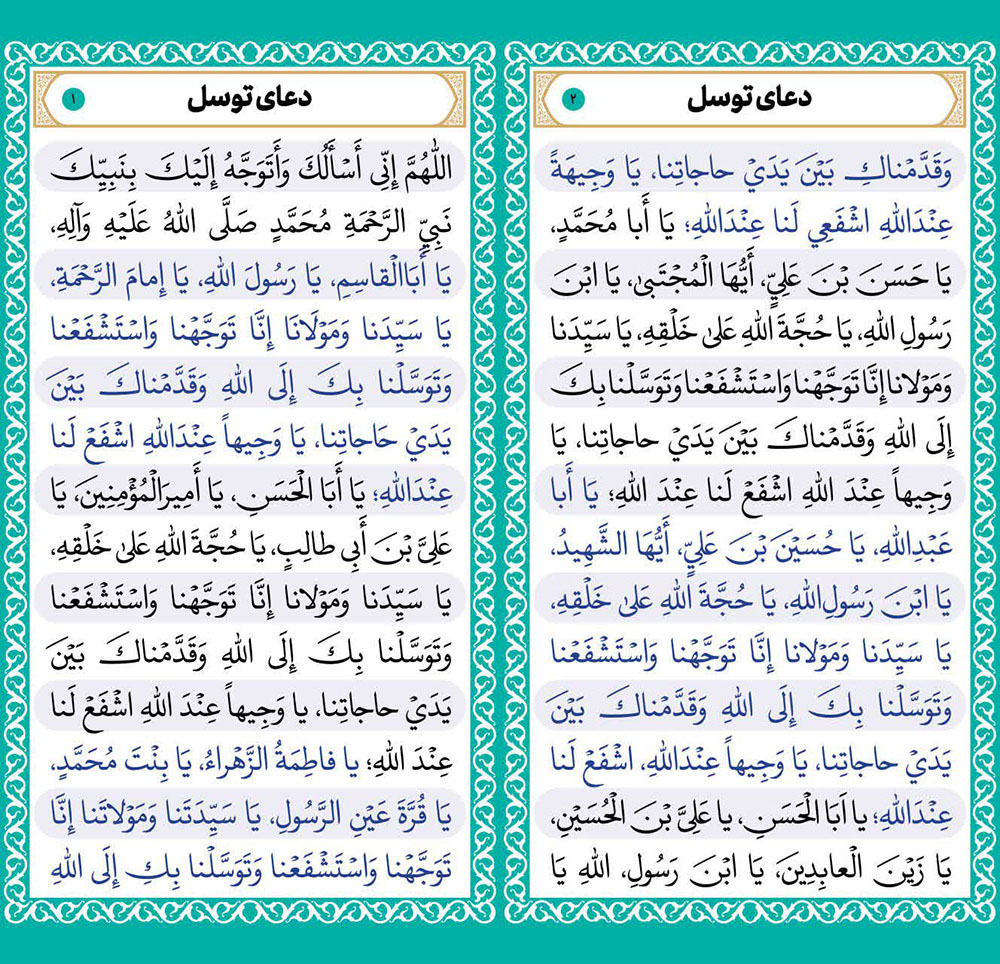 دعای توسل
۱
اللّٰهُمَّ إِنِّي أَسْأَلُكَ وَأَتَوَجَّهُ إِلَيْكَ بِنَبِيِّكَ
نَبِيِّ الرَّحْمَةِ مُحَمَّدٍ صَلَّى اللهُ عَلَيْهِ وَآلِهِ،
يَا أَبَاالْقاسِمِ، يَا رَسُولَ اللهِ، يَا إِمامَ الرَّحْمَةِ،
يَا سَيِّدَنا وَمَوْلَانَا إِنَّا تَوَجَّهْنا وَاسْتَشْفَعْنا
وَتَوَسَّلْنا بِكَ إِلَى اللهِ وَقَدَّمْناكَ بَيْنَ
يَدَيْ حَاجاتِنا، يَا وَجِيهاً عِنْدَاللهِ اشْفَعْ لَنا
عِنْدَاللهِ؛ يَا أَبَا الْحَسَنِ، يَا أَمِيرَالْمُؤْمِنِينَ، يَا
عَلِيَّ بْنَ أَبِي طالِبٍ، يَا حُجَّةَ اللهِ عَلىٰ خَلْقِهِ،
يَا سَيِّدَنا وَمَوْلانا إِنَّا تَوَجَّهْنا وَاسْتَشْفَعْنا
وَتَوَسَّلْنا بِكَ إِلَى اللهِ وَقَدَّمْناكَ بَيْنَ
يَدَيْ حاجاتِنا، یا وَجِيهاً عِنْدَ اللهِ اشْفَعْ لَنا
عِنْدَ اللهِ؛ یا فاطِمَةُ الزَّهْراءُ، يَا بِنْتَ مُحَمَّدٍ،
يَا قُرَّةَ عَيْنِ الرَّسُولِ، يَا سَيِّدَتَنا وَمَوْلاتَنا إِنَّا
تَوَجَّهْنا وَاسْتَشْفَعْنا وَتَوَسَّلْنا بِكِ إِلَى اللهِ
دعای توسل
۲
وَقَدَّمْناكِ بَيْنَ يَدَيْ حاجاتِنا، يَا وَجِيهَةً
عِنْدَاللهِ اشْفَعِي لَنا عِنْدَاللهِ؛ يَا أَبا مُحَمَّدٍ،
يَا حَسَنَ بْنَ عَلِيٍّ، أَيُّهَا الْمُجْتَبىٰ، يَا ابْنَ
رَسُولِ اللهِ، يَا حُجَّةَ اللهِ عَلىٰ خَلْقِهِ، يَا سَيِّدَنا
وَمَوْلانا إِنَّا تَوَجَّهْنا وَاسْتَشْفَعْنا وَتَوَسَّلْنا بِكَ
إِلَى اللهِ وَقَدَّمْناكَ بَيْنَ يَدَيْ حاجاتِنا، يَا
وَجِيهاً عِنْدَ اللهِ اشْفَعْ لَنا عِنْدَ اللهِ؛ يَا أَبا
عَبْدِاللهِ، يَا حُسَيْنَ بْنَ عَلِيٍّ، أَيُّهَا الشَّهِيدُ،
يَا ابْنَ رَسُولِاللهِ، يَا حُجَّةَ اللهِ عَلىٰ خَلْقِهِ،
يَا سَيِّدَنا وَمَوْلانا إِنَّا تَوَجَّهْنا وَاسْتَشْفَعْنا
وَتَوَسَّلْنا بِكَ إِلَى اللهِ وَقَدَّمْناكَ بَيْنَ
يَدَيْ حاجاتِنا، يَا وَجِيهاً عِنْدَاللهِ، اشْفَعْ لَنا
عِنْدَاللهِ؛ يا اَبَا الْحَسَنِ، يا عَلِيَّ بْنَ الْحُسَيْنِ،
يَا زَيْنَ الْعابِدِينَ، يَا ابْنَ رَسُولِ، اللهِ يَا